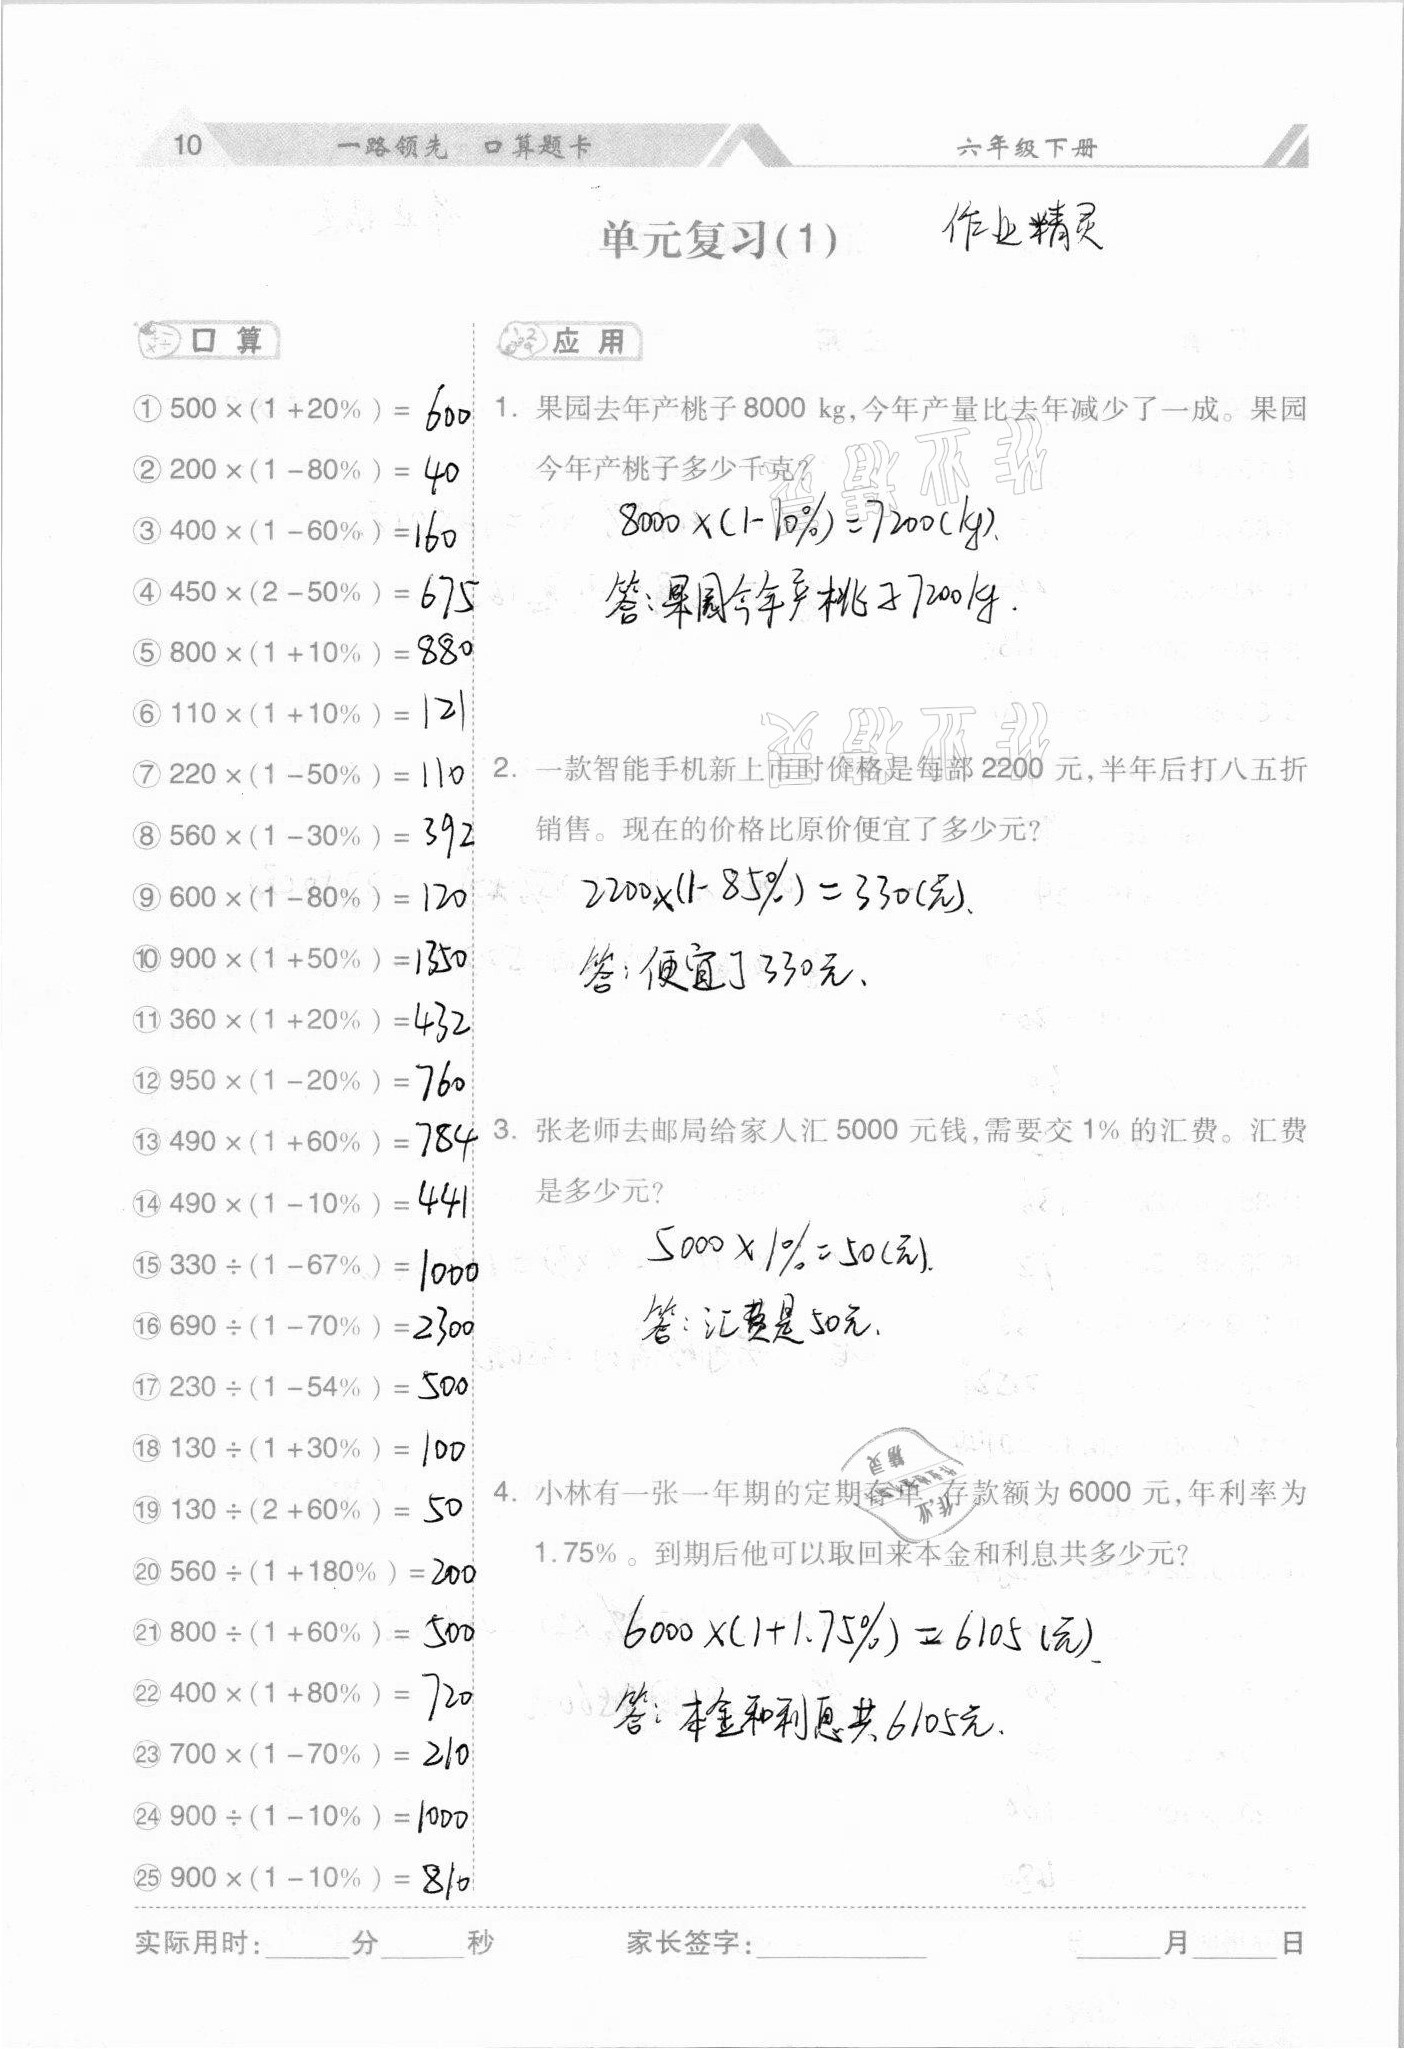 10 一路领先 口算题卡 六年级下册
单元复习(1) 作业精灵
口算
① 500×(1+20%)= 600
② 200×(1-80%)= 40
③ 400×(1-60%)= 160
④ 450×(2-50%)= 675
⑤ 800×(1+10%)= 880
⑥ 110×(1+10%)= 121
⑦ 220×(1-50%)= 110
⑧ 560×(1-30%)= 392
⑨ 600×(1-80%)= 120
⑩ 900×(1+50%)= 1350
⑪ 360×(1+20%)= 432
⑫ 950×(1-20%)= 760
⑬ 490×(1+60%)= 784
⑭ 490×(1-10%)= 441
⑮ 330÷(1-67%)= 1000
⑯ 690÷(1-70%)= 2300
⑰ 230÷(1-54%)= 500
⑱ 130÷(1+30%)= 100
⑲ 130÷(2+60%)= 50
⑳ 560÷(1+180%)= 200
㉑ 800÷(1+60%)= 500
㉒ 400×(1+80%)= 720
㉓ 700×(1-70%)= 210
㉔ 900÷(1-10%)= 1000
㉕ 900×(1-10%)= 810
应用
1. 果园去年产桃子8000 kg,今年产量比去年减少了一成。果园
今年产桃子多少千克?
8000×(1-10%)=7200(kg).
答:果园今年产桃子7200kg.
2. 一款智能手机新上市时价格是每部2200元,半年后打八五折
销售。现在的价格比原价便宜了多少元?
2200×(1-85%)=330(元).
答:便宜了330元.
3. 张老师去邮局给家人汇5000元钱,需要交1%的汇费。汇费
是多少元?
5000×1%=50(元).
答:汇费是50元.
4. 小林有一张一年期的定期存单,存款额为6000元,年利率为
1.75%。到期后他可以取回来本金和利息共多少元?
6000×(1+1.75%)=6105(元).
答:本金和利息共6105元.
作业精灵
作业精灵
实际用时:______分______秒 家长签字:____________ ______月______日